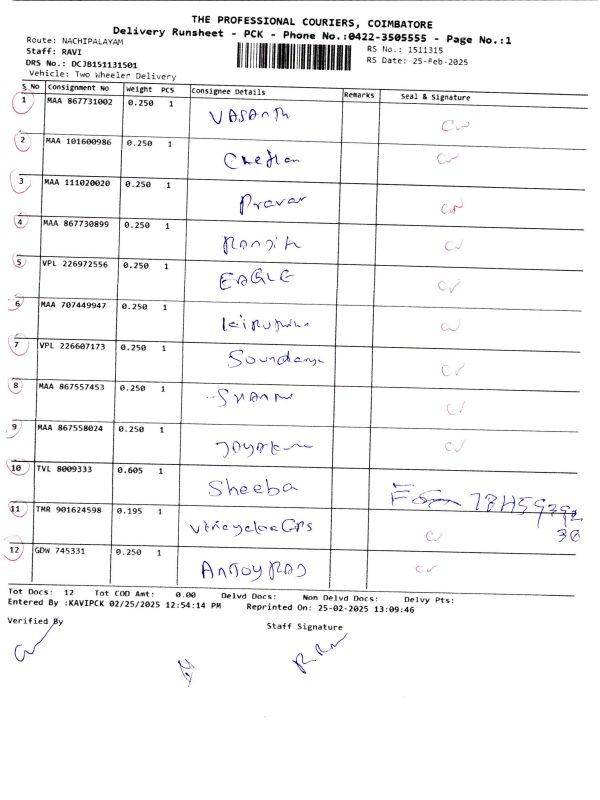 THE PROFESSIONAL COURIERS, COIMBATORE
Delivery Runsheet - PCK - Phone No.:0422-3505555 - Page No.:1
Route: NACHIPALAYAM
Staff: RAVI
DRS No.: DCJB151131501
Vehicle: Two Wheeler Delivery
RS No.: 1511315
RS Date: 25-Feb-2025
S No Consignment No Weight PCS Consignee Details Remarks Seal & Signature
1 MAA 867731002 0.250 1 VASANTH
2 MAA 101600986 0.250 1 Chethan
3 MAA 111020020 0.250 1 Pravar
4 MAA 867730899 0.250 1 Ranjith
5 VPL 226972556 0.250 1 EAGLE
6 MAA 707449947 0.250 1
7 VPL 226607173 0.250 1 Soundarya
8 MAA 867557453 0.250 1
9 MAA 867558024 0.250 1
10 TVL 8009333 0.605 1 Sheeba
11 TMR 901624598 0.195 1
12 GDW 745331 0.250 1 ANTOY RAJ
Tot Docs: 12 Tot COD Amt: 0.00 Delvd Docs: Non Delvd Docs: Delvy Pts:
Entered By :KAVIPCK 02/25/2025 12:54:14 PM Reprinted On: 25-02-2025 13:09:46
Verified By Staff Signature